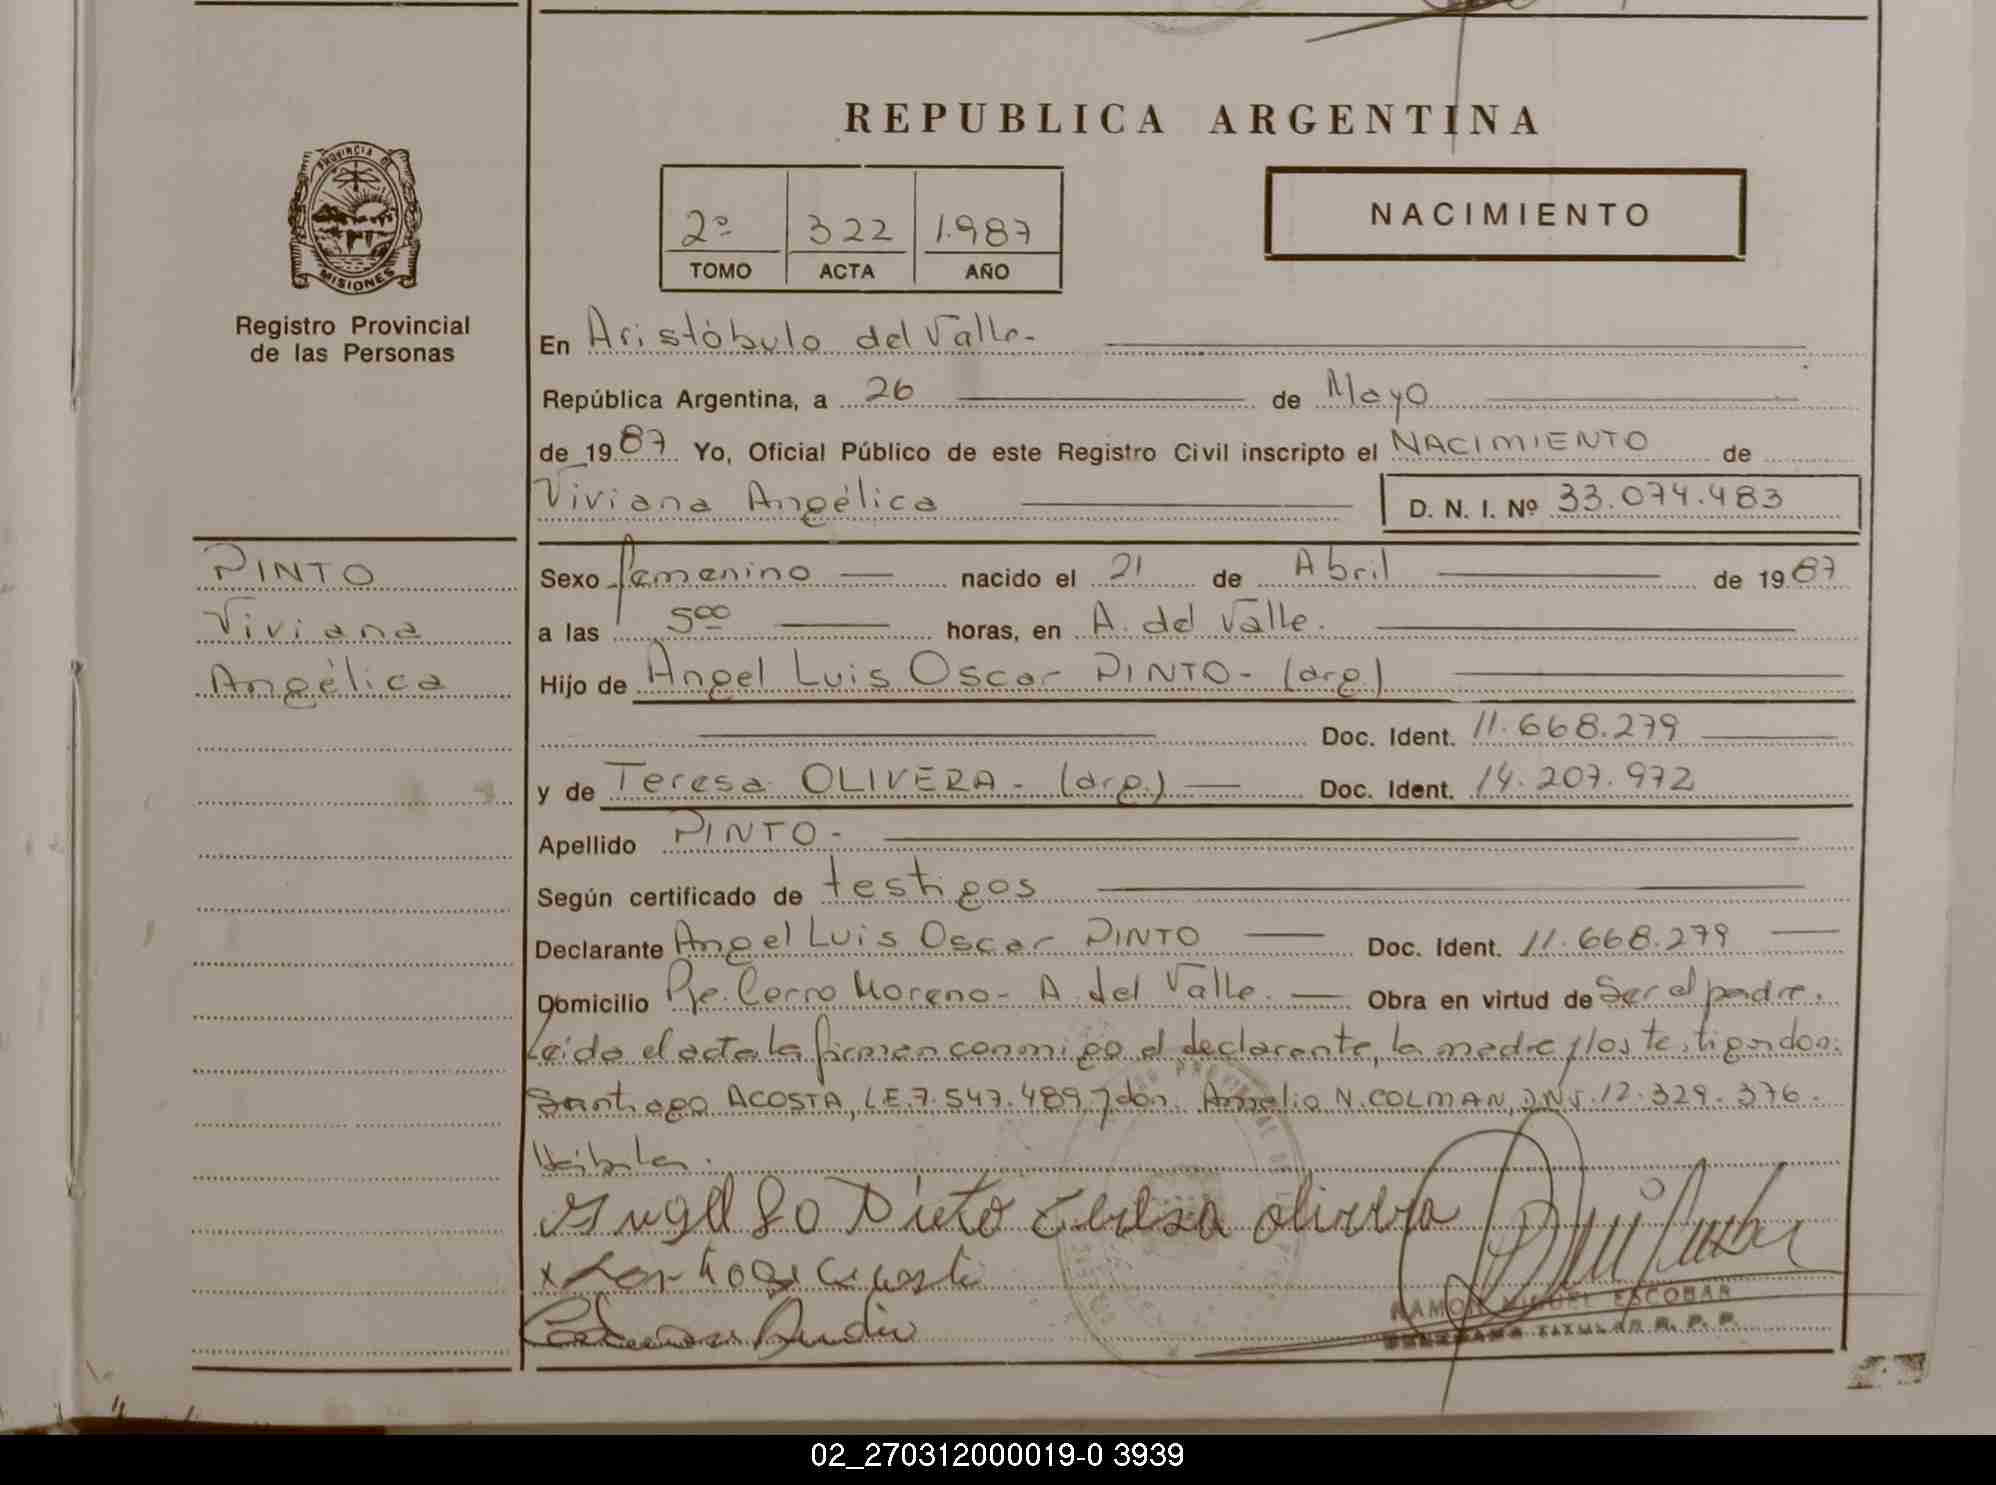 REPUBLICA ARGENTINA
PROVINCIA DE
MISIONES
Registro Provincial
de las Personas
2º 322 1.987
TOMO ACTA AÑO
NACIMIENTO
En Aristóbulo del Valle.-
República Argentina, a 26 de Mayo
de 1987 Yo, Oficial Público de este Registro Civil inscripto el NACIMIENTO de
Viviana Angélica D. N. I. Nº 33.074.483
PINTO
Viviana
Angélica
Sexo femenino nacido el 21 de Abril de 1987
a las 5ºº horas, en A. del Valle.
Hijo de Angel Luis Oscar PINTO- (arg.)
Doc. Ident. 11.668.279
y de Teresa OLIVERA- (arg.) Doc. Ident. 14.207.972
Apellido PINTO-
Según certificado de testigos
Declarante Angel Luis Oscar PINTO Doc. Ident. 11.668.279
Domicilio Pje. Cerro Moreno- A. del Valle. Obra en virtud de Ser el padre.
Leida el acta la firman conmigo el declarante, la madre y los testigos don:
Santiago ACOSTA, L.E. 7.547.489 y don Amelio N. COLMAN, DNI. 12.329.376.
Hábiles.
Teresa Olivera
RAMON MIGUEL ESCOBAR
TITULAR R. P. P.
02_270312000019-0 3939